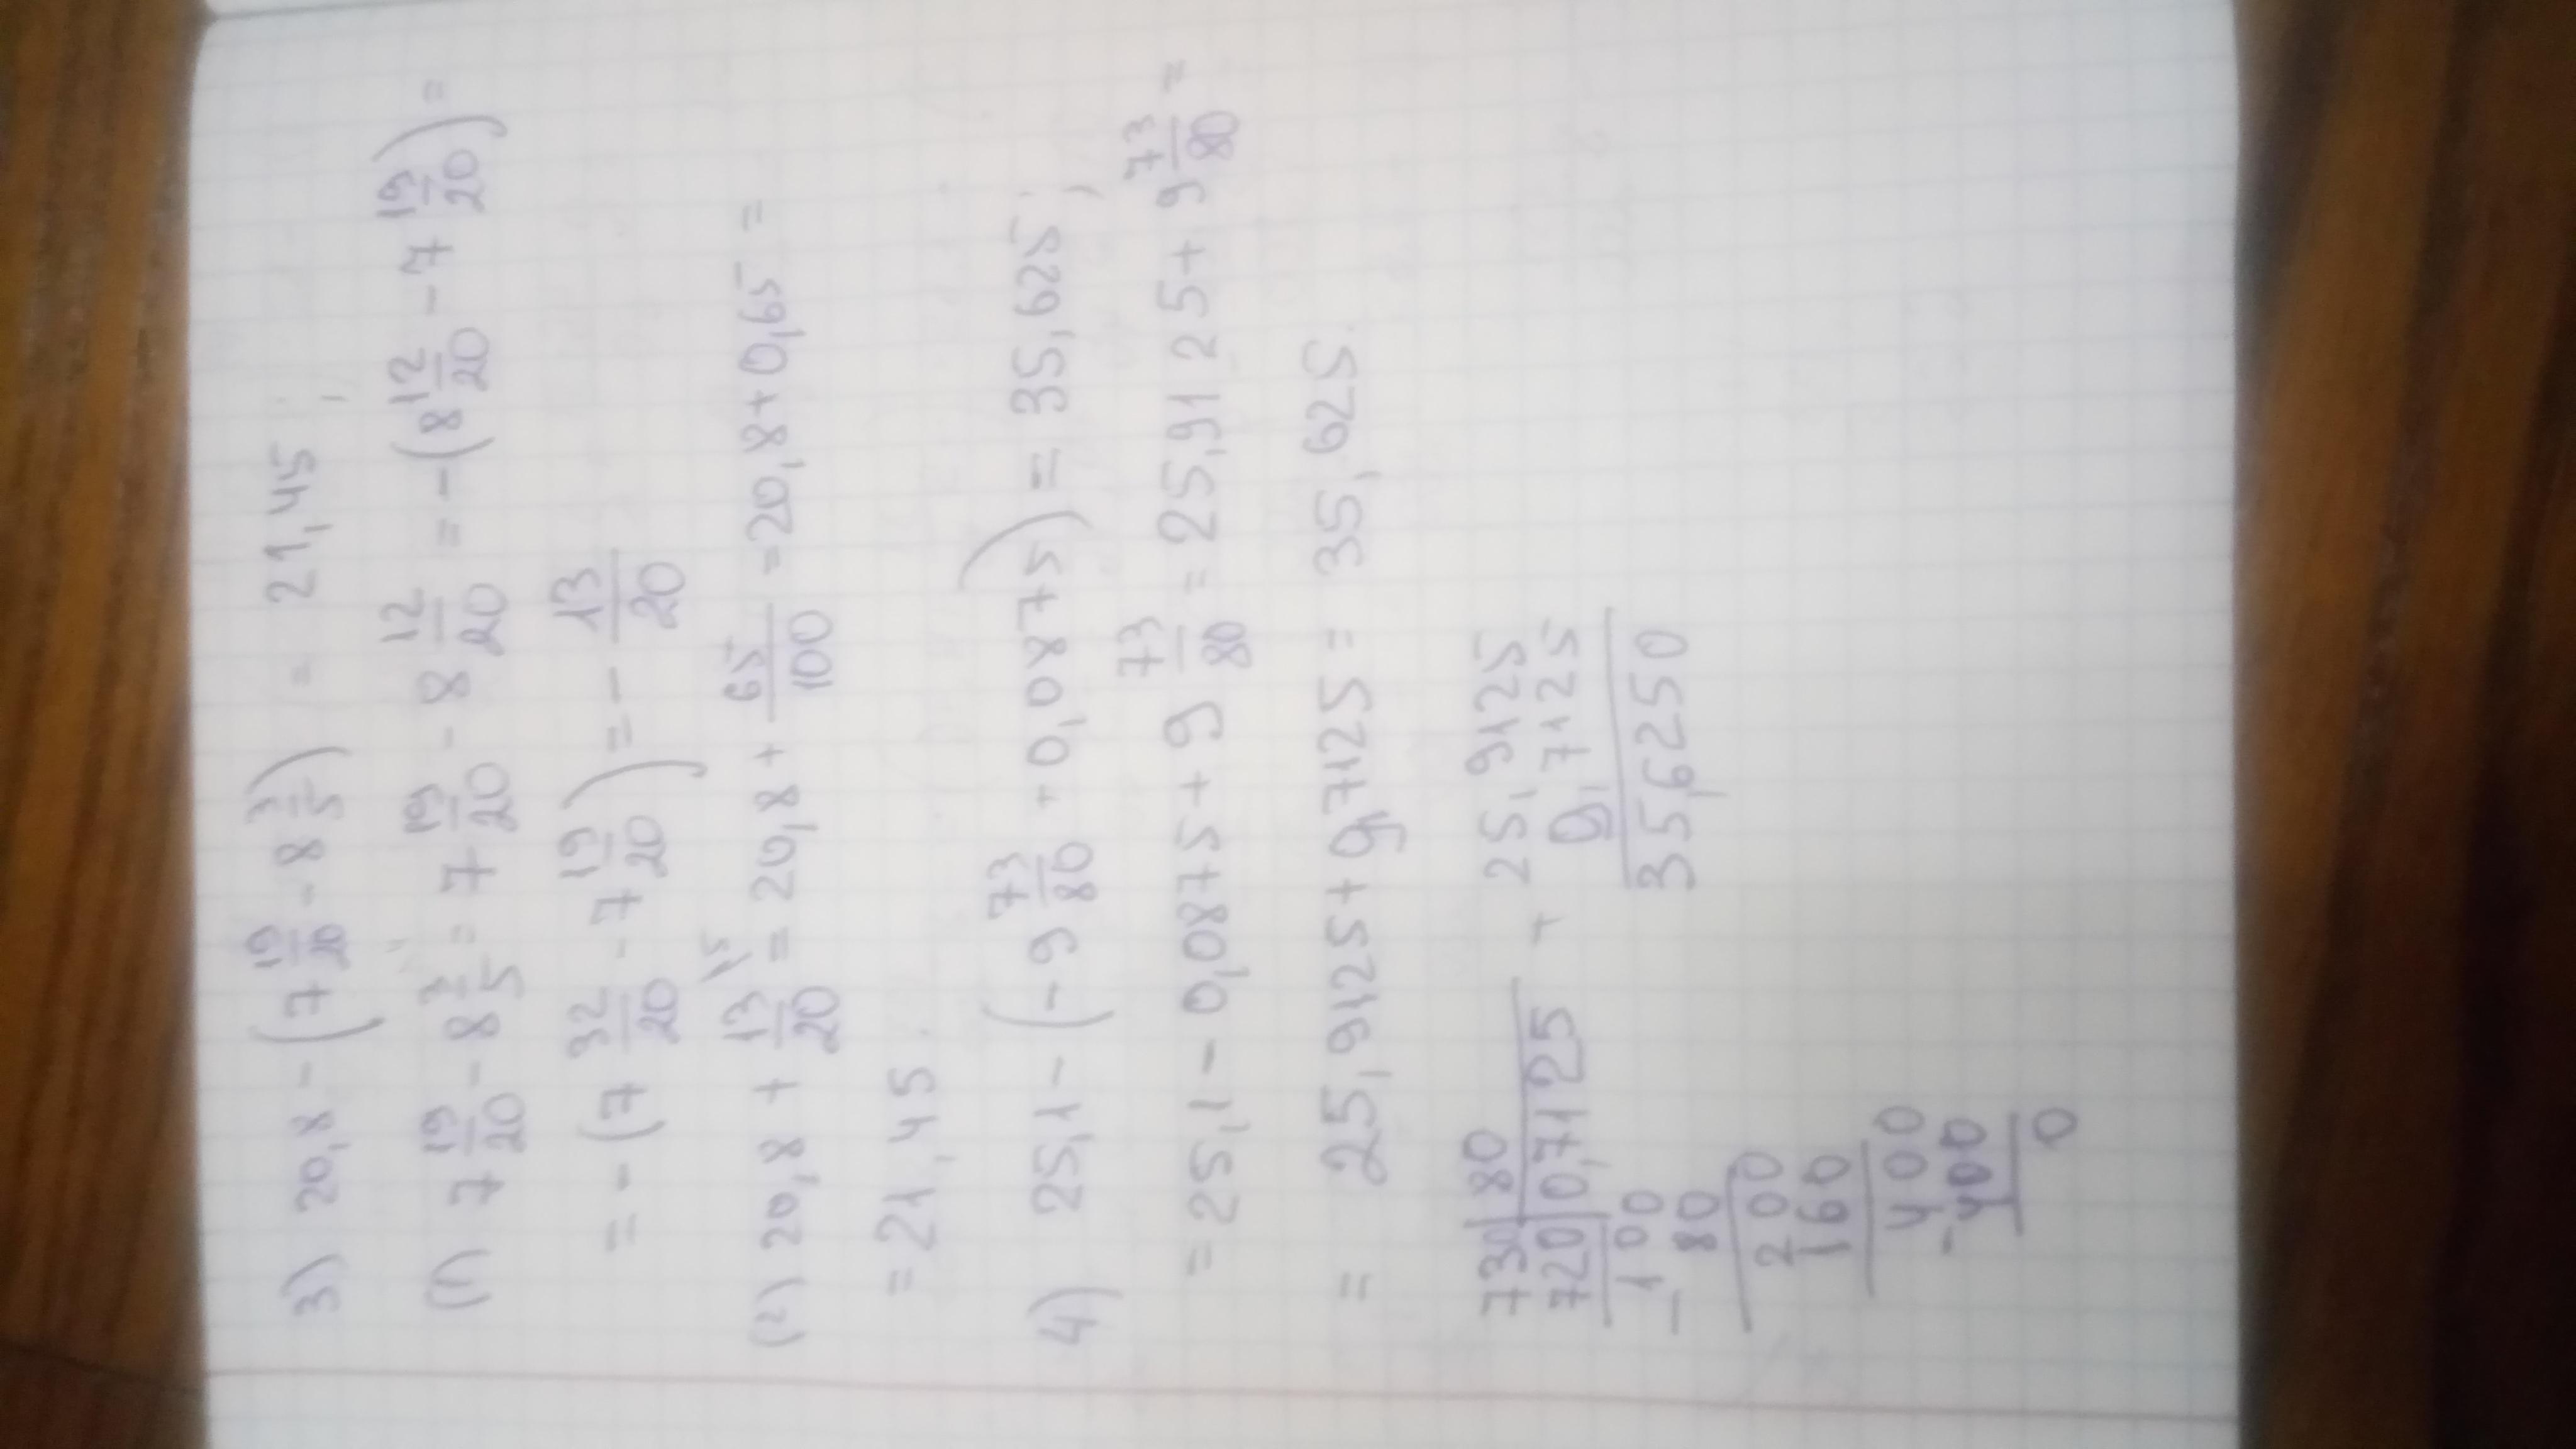 3) 20,8 - (7 19/20 - 8 3/5) = 21,45;
(1) 7 19/20 - 8 3/5 = 7 19/20 - 8 12/20 = -(8 12/20 - 7 19/20) =
= -(7 32/20 - 7 19/20) = - 13/20
(2) 20,8 + 13/20 = 20,8 + 65/100 = 20,8 + 0,65 =
= 21,45.
4) 25,1 - (-9 73/80 + 0,0875) = 35,625;
= 25,1 - 0,0875 + 9 73/80 = 25,9125 + 9 73/80 =
= 25,9125 + 9,7125 = 35,625.
730 | 80 + 25,9125
720 | 0,7125 9,7125
- 100 35,6250
80
200
160
- 400
400
0